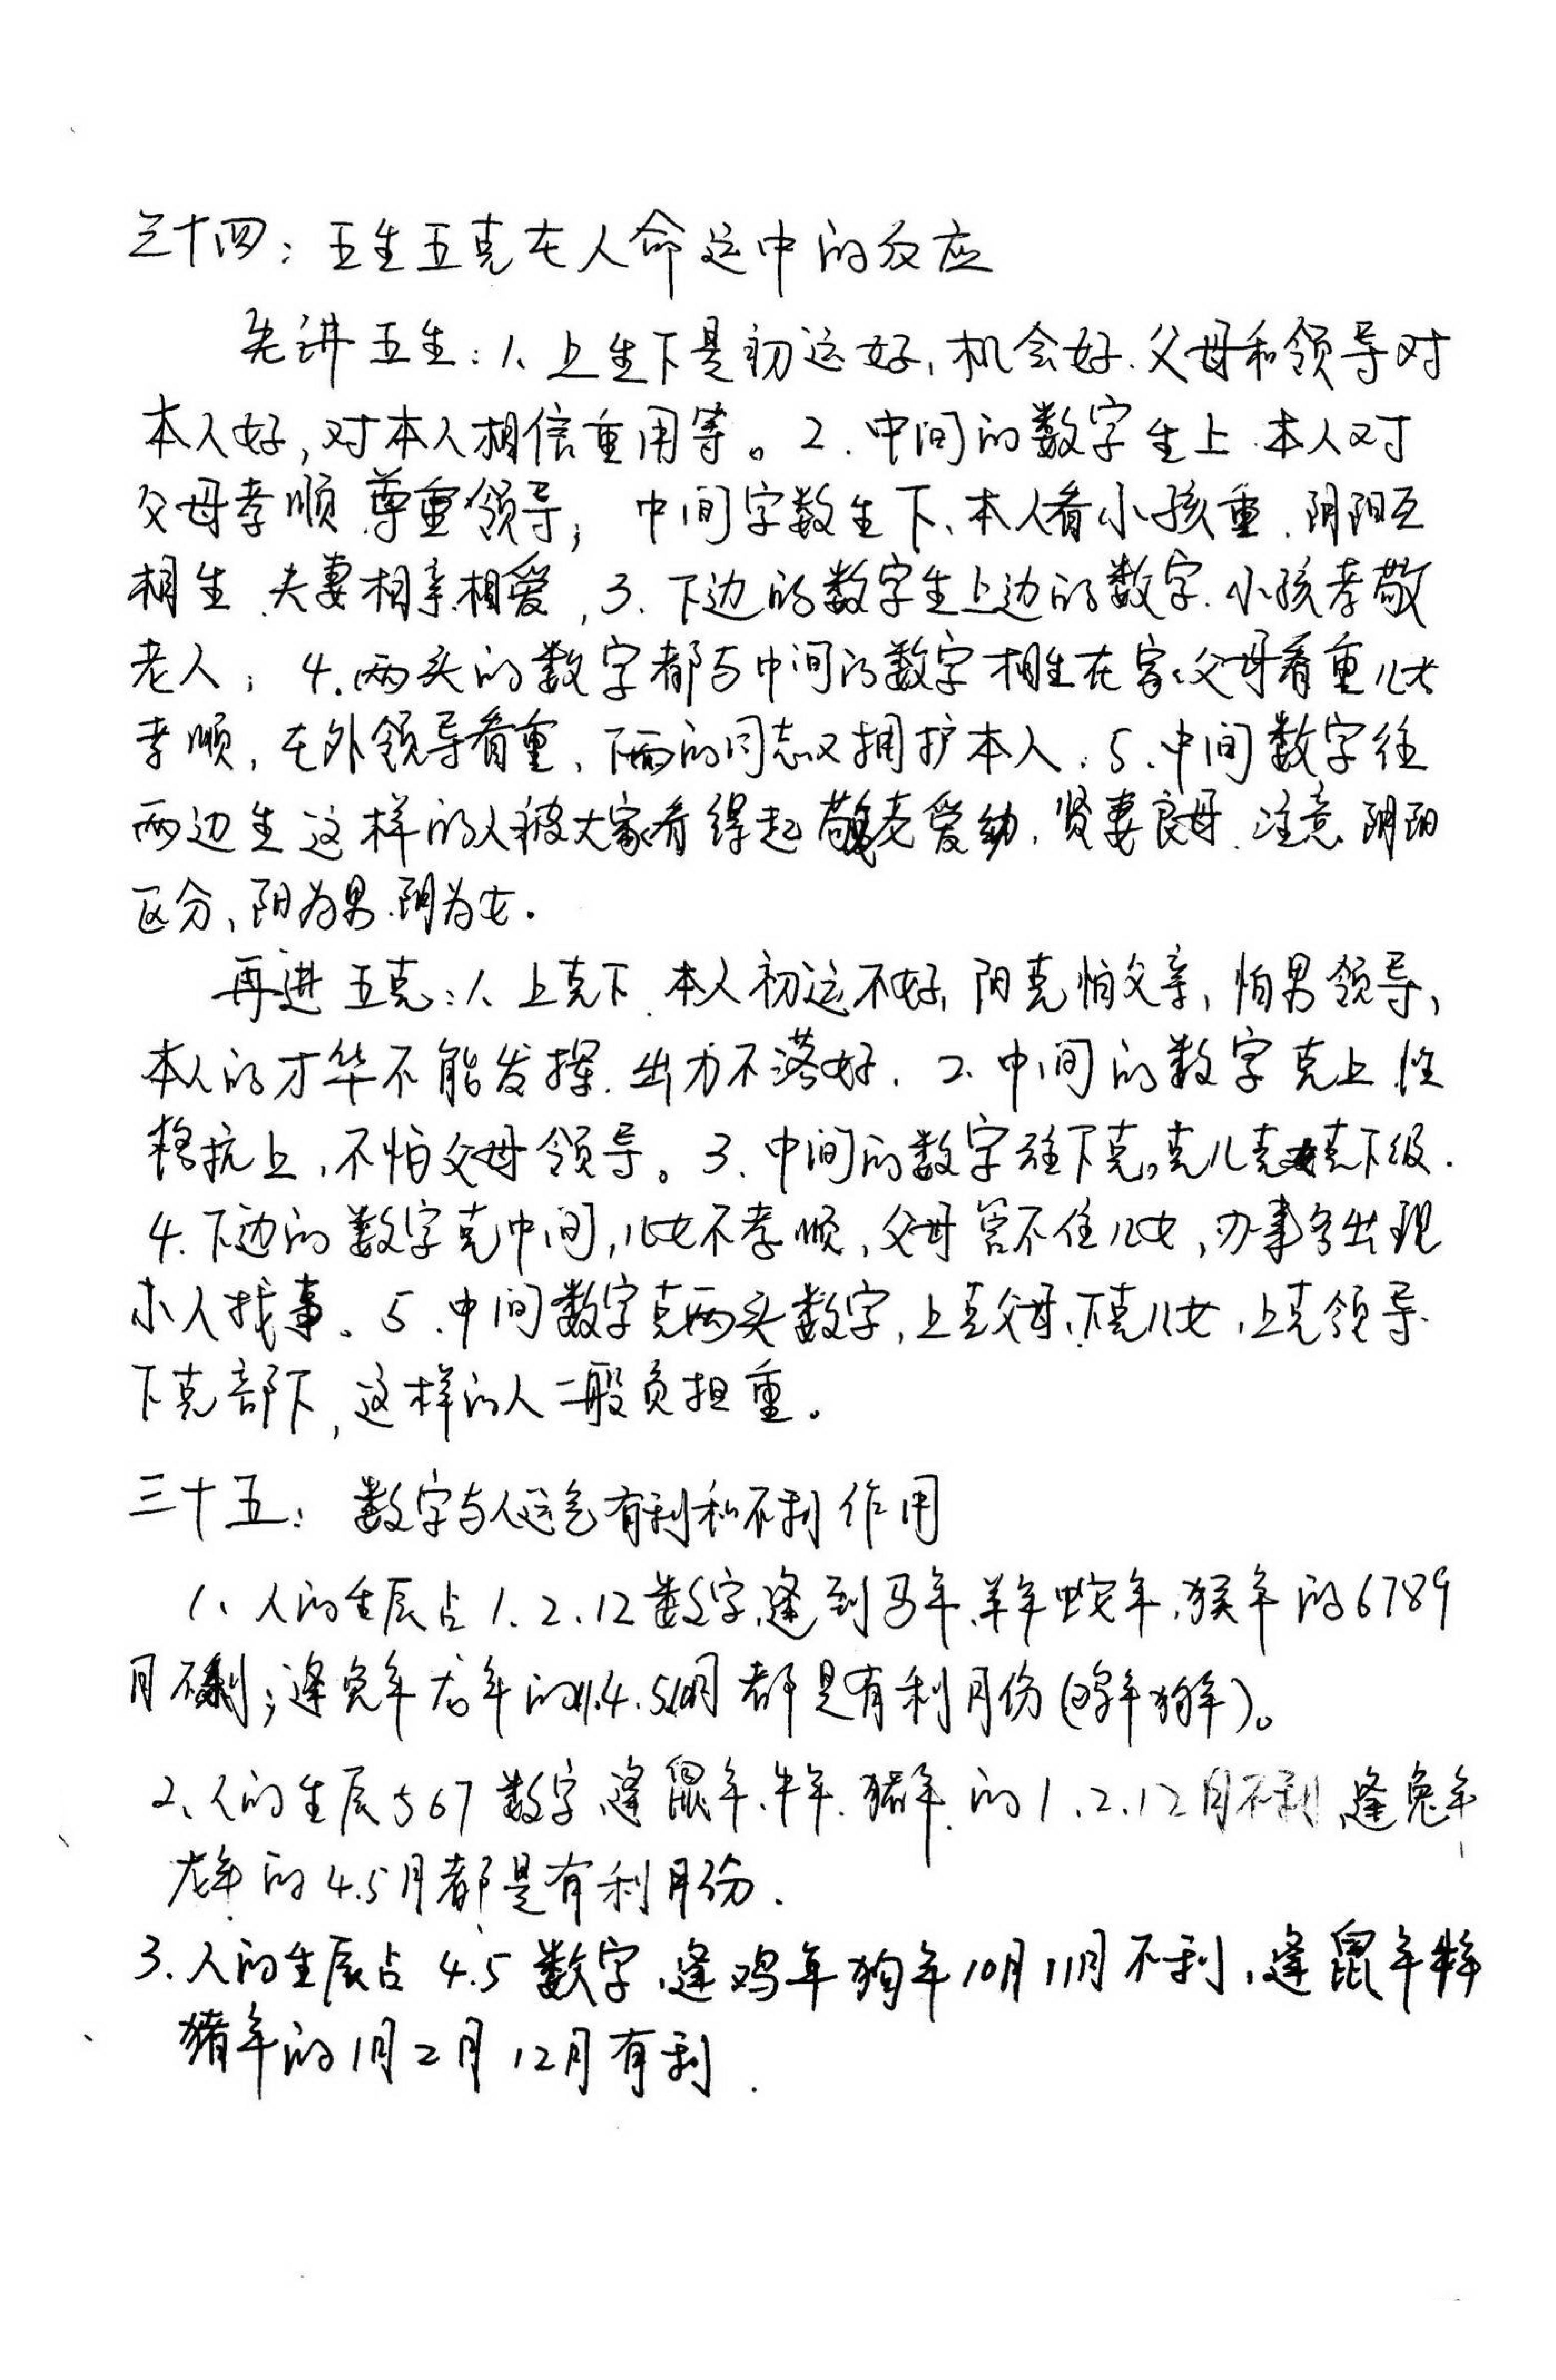 三十四：五生五克在人命运中的反应
先讲五生：1、上生下是初运好，机会好.父母和领导对
本人好，对本人相信重用等。2.中间的数字生上.本人对
父母孝顺.尊重领导；中间字数生下、本人看小孩重.阴阳互
相生.夫妻相亲相爱，3.下边的数字生上边的数字.小孩孝敬
老人；4.两头的数字都与中间的数字相生在家父母看重儿女
孝顺，在外领导看重、下面的同志又拥护本人.5、中间数字往
两边生这样的人被大家看得起敬老爱幼.贤妻良母.注意阴阳
区分、阳为男.阴为女.
再进五克：1、上克下.本人初运不好，阳克怕父亲，怕男领导，
本人的才华不能发挥.出力不落好.2.中间的数字克上.性
格抗上，不怕父母领导。3.中间的数字往下克。克儿克女克下级.
4.下边的数字克中间，儿女不孝顺，父母管不住儿女，办事多出现
小人找事。5、中间数字克两头数字，上克父母、下克儿女，上克领导.
下克部下，这样的人一般负担重。
三十五：数字与人运气有利和不利作用
1、人的生辰占1.2.12数字，逢到马年、羊年蛇年，猴年的6789
月不利；逢兔年龙年的 4.5 月都是有利月份(鸡年狗年)。
2、人的生辰567数字、逢鼠年、牛年.猪年.的1.2.12月不利逢兔年
龙年的4.5月都是有利月份.
3.人的生辰占4.5数字、逢鸡年狗年10月11月不利，逢鼠年牛年
猪年的1月2月12月有利.